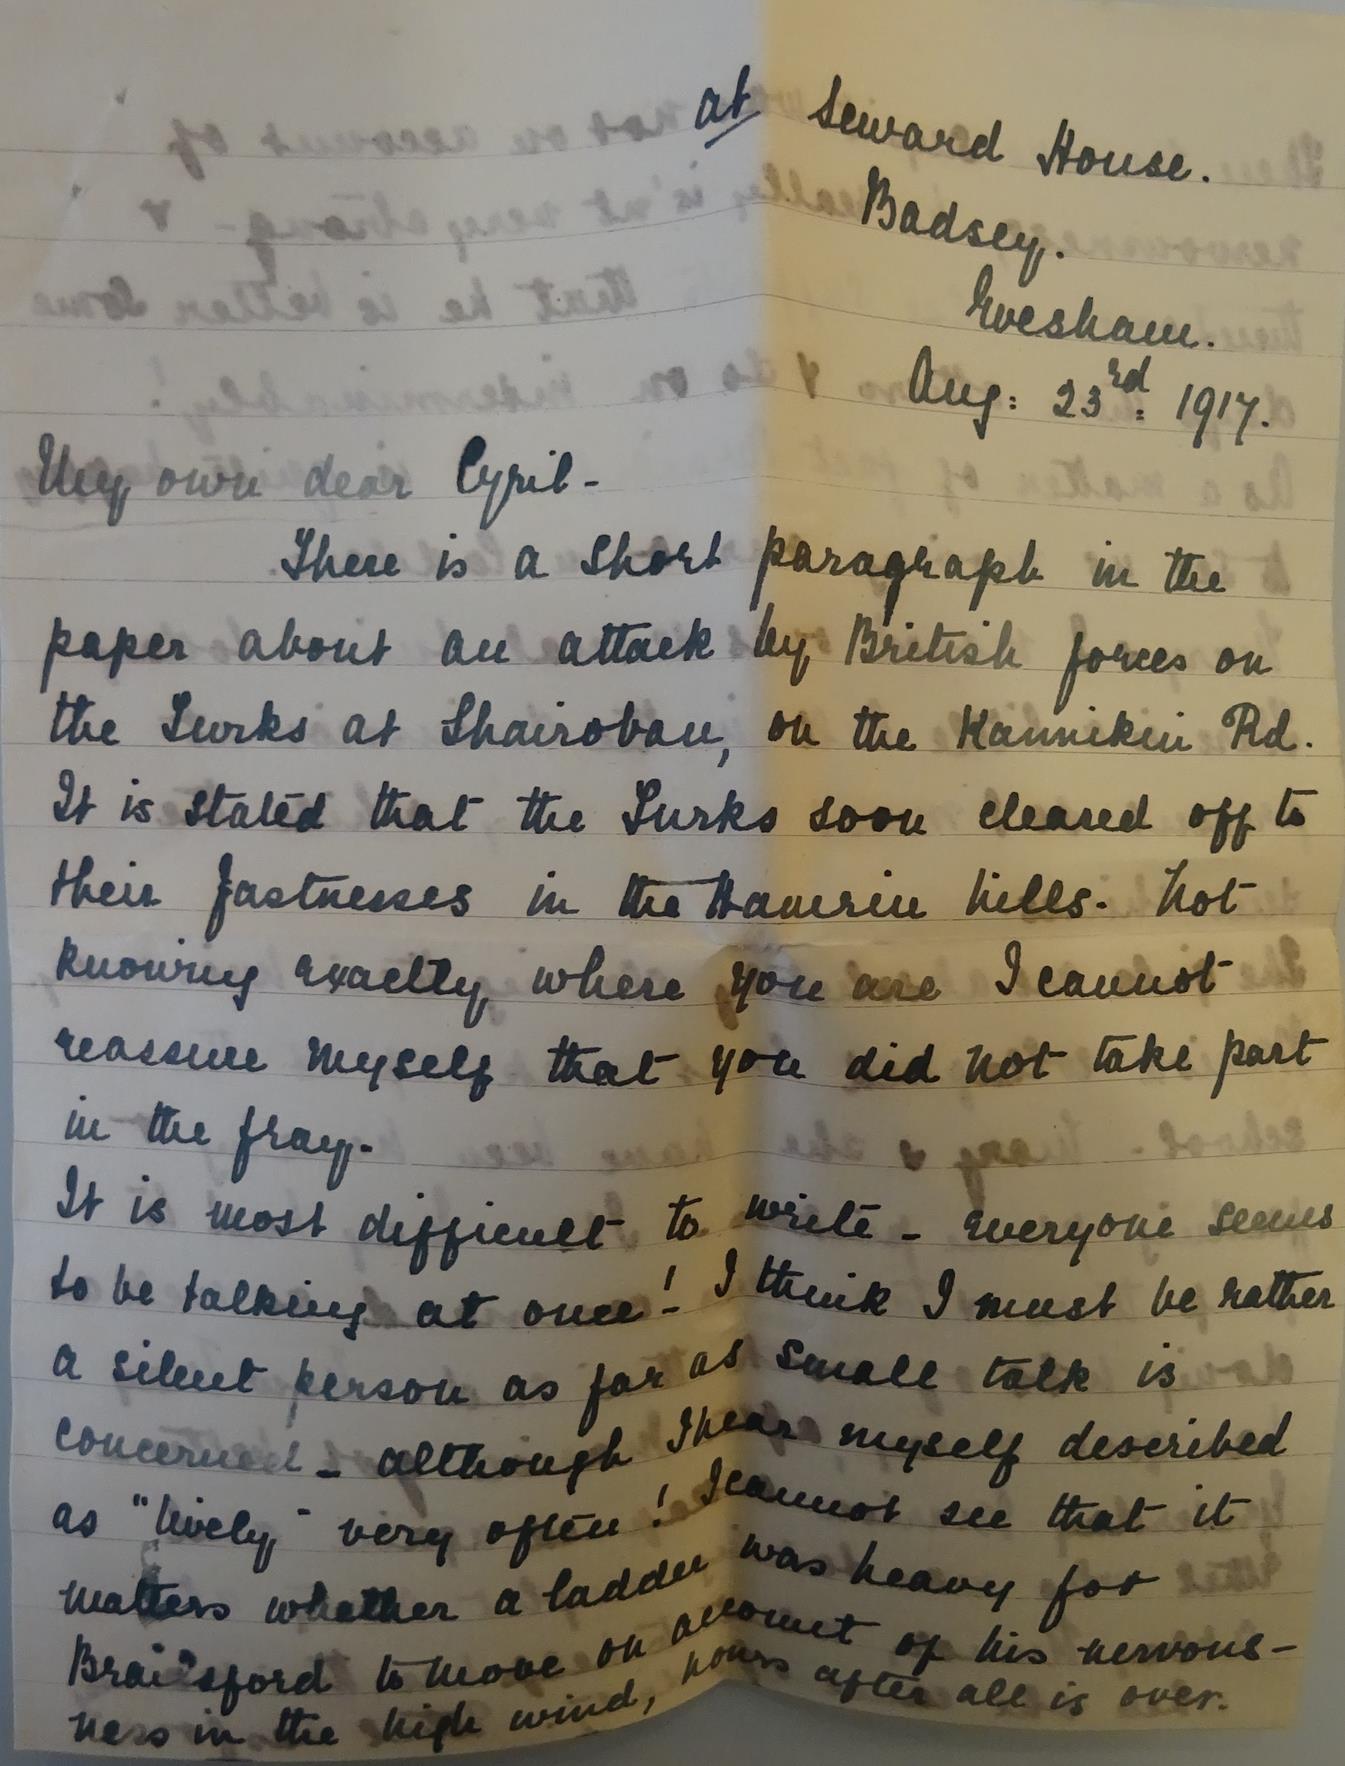 at Seward House.
Badsey.
Evesham.
Aug: 23rd: 1917.
My own dear Cyril -
There is a short paragraph in the
paper about an attack by British forces on
the Turks at Shairoban, on the Kannikin Rd.
It is stated that the Turks soon cleared off to
their fastnesses in the Hamrin hills. Not
knowing exactly where you are I cannot
reassure myself that you did not take part
in the fray.
It is most difficult to write - everyone seems
to be talking at once! - I think I must be rather
a silent person as far as small talk is
concerned - although I hear myself described
as "lively" very often! I cannot see that it
matters whether a ladder was heavy for
Brailsford to move on account of his nervous-
ness in the high wind, hours after all is over.